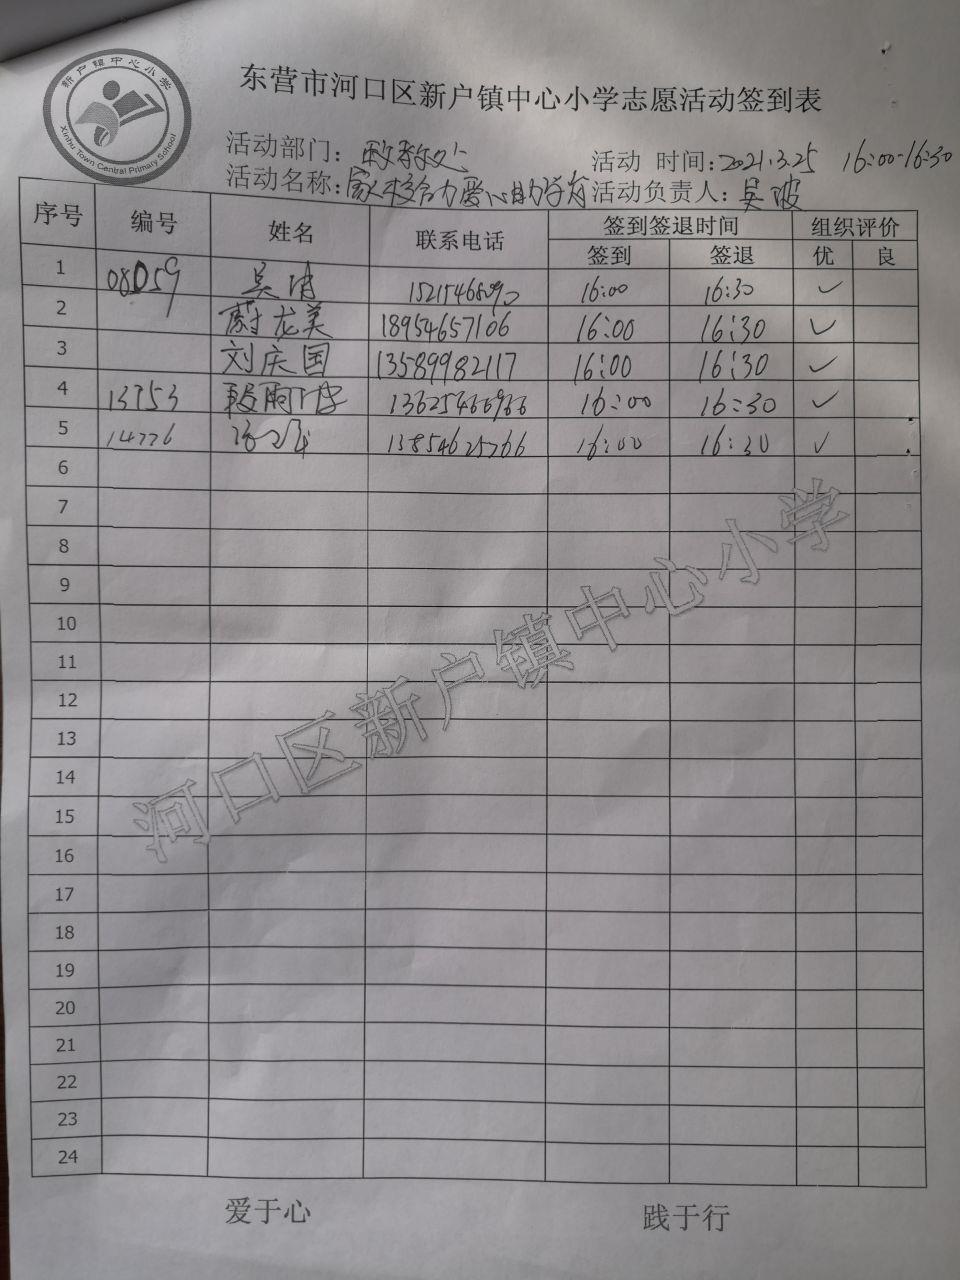 新户镇中心小学
Xinhu Town Central Primary School
东营市河口区新户镇中心小学志愿活动签到表
活动部门：政教处 活动 时间：2021.3.25 16:00-16:30
活动名称：家校合力爱心助学育 活动负责人：吴波
序号 编号 姓名 联系电话 签到签退时间 组织评价
签到 签退 优 良
1 08059 吴 1521546809 16:00 16:30 ✓
2 蔚龙美 18954657106 16:00 16:30 ✓
3 刘庆国 13589982117 16:00 16:30 ✓
4 13753 13625466966 16:00 16:30 ✓
5 14776 13854625766 16:00 16:30 ✓
6
7
8
9
10
11
12
13
14
15
16
17
18
19
20
21
22
23
24
河口区新户镇中心小学
爱于心 践于行